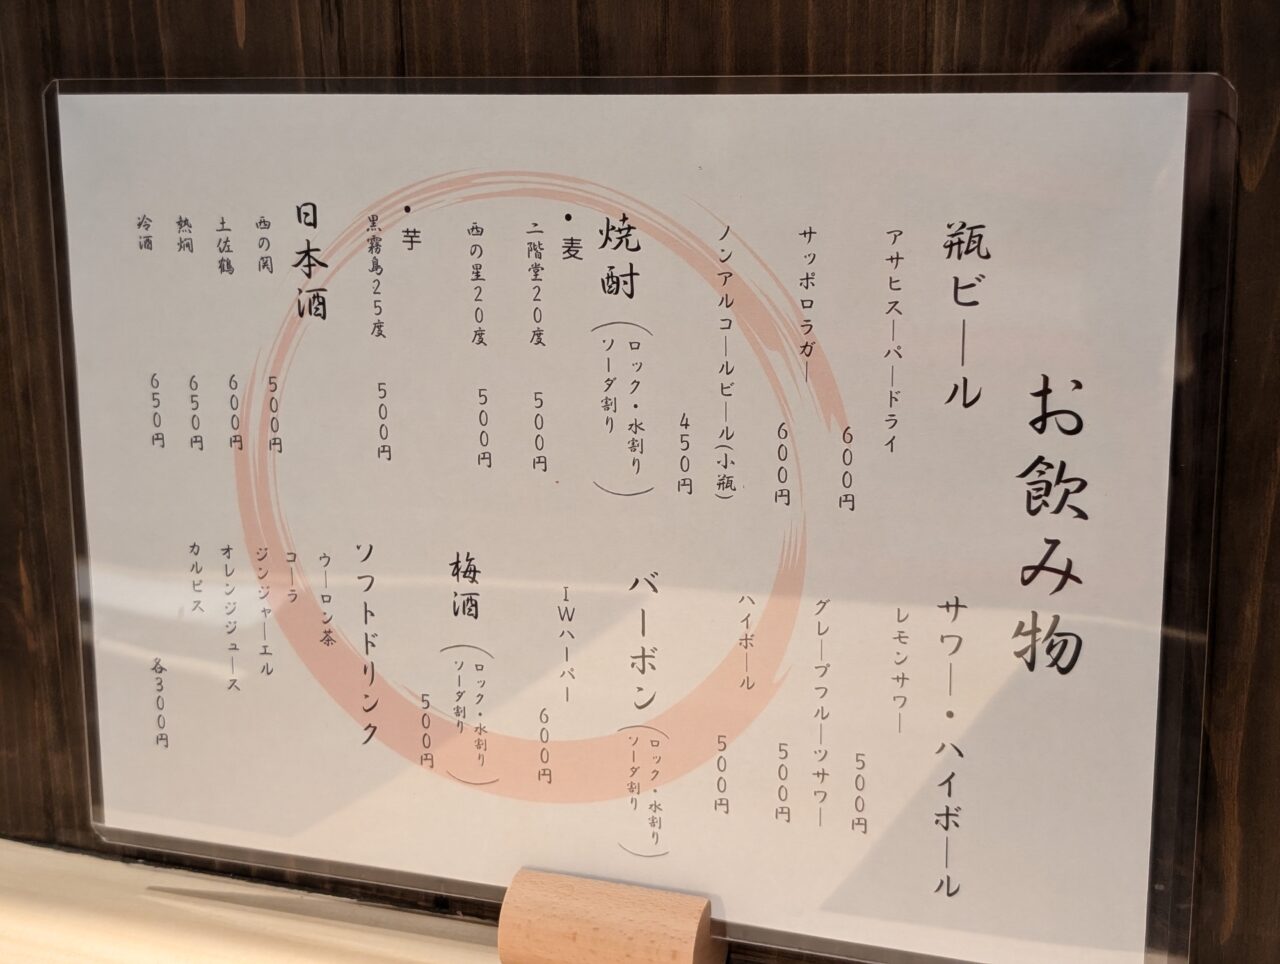 お飲み物
瓶ビール
アサヒスーパードライ
600円
サッポロラガー
600円
ノンアルコールビール(小瓶)
450円
焼酎(ロック・水割り
ソーダ割り)
・麦
二階堂20度 500円
西の星20度 500円
・芋
黒霧島25度 500円
日本酒
西の関 500円
土佐鶴 600円
熱燗 650円
冷酒 650円
サワー・ハイボール
レモンサワー
500円
グレープフルーツサワー
500円
ハイボール 500円
バーボン(ロック・水割り
ソーダ割り)
IWハーパー
600円
梅酒(ロック・水割り
ソーダ割り)
500円
ソフトドリンク
ウーロン茶
コーラ
ジンジャーエル
オレンジジュース
カルピス
各300円